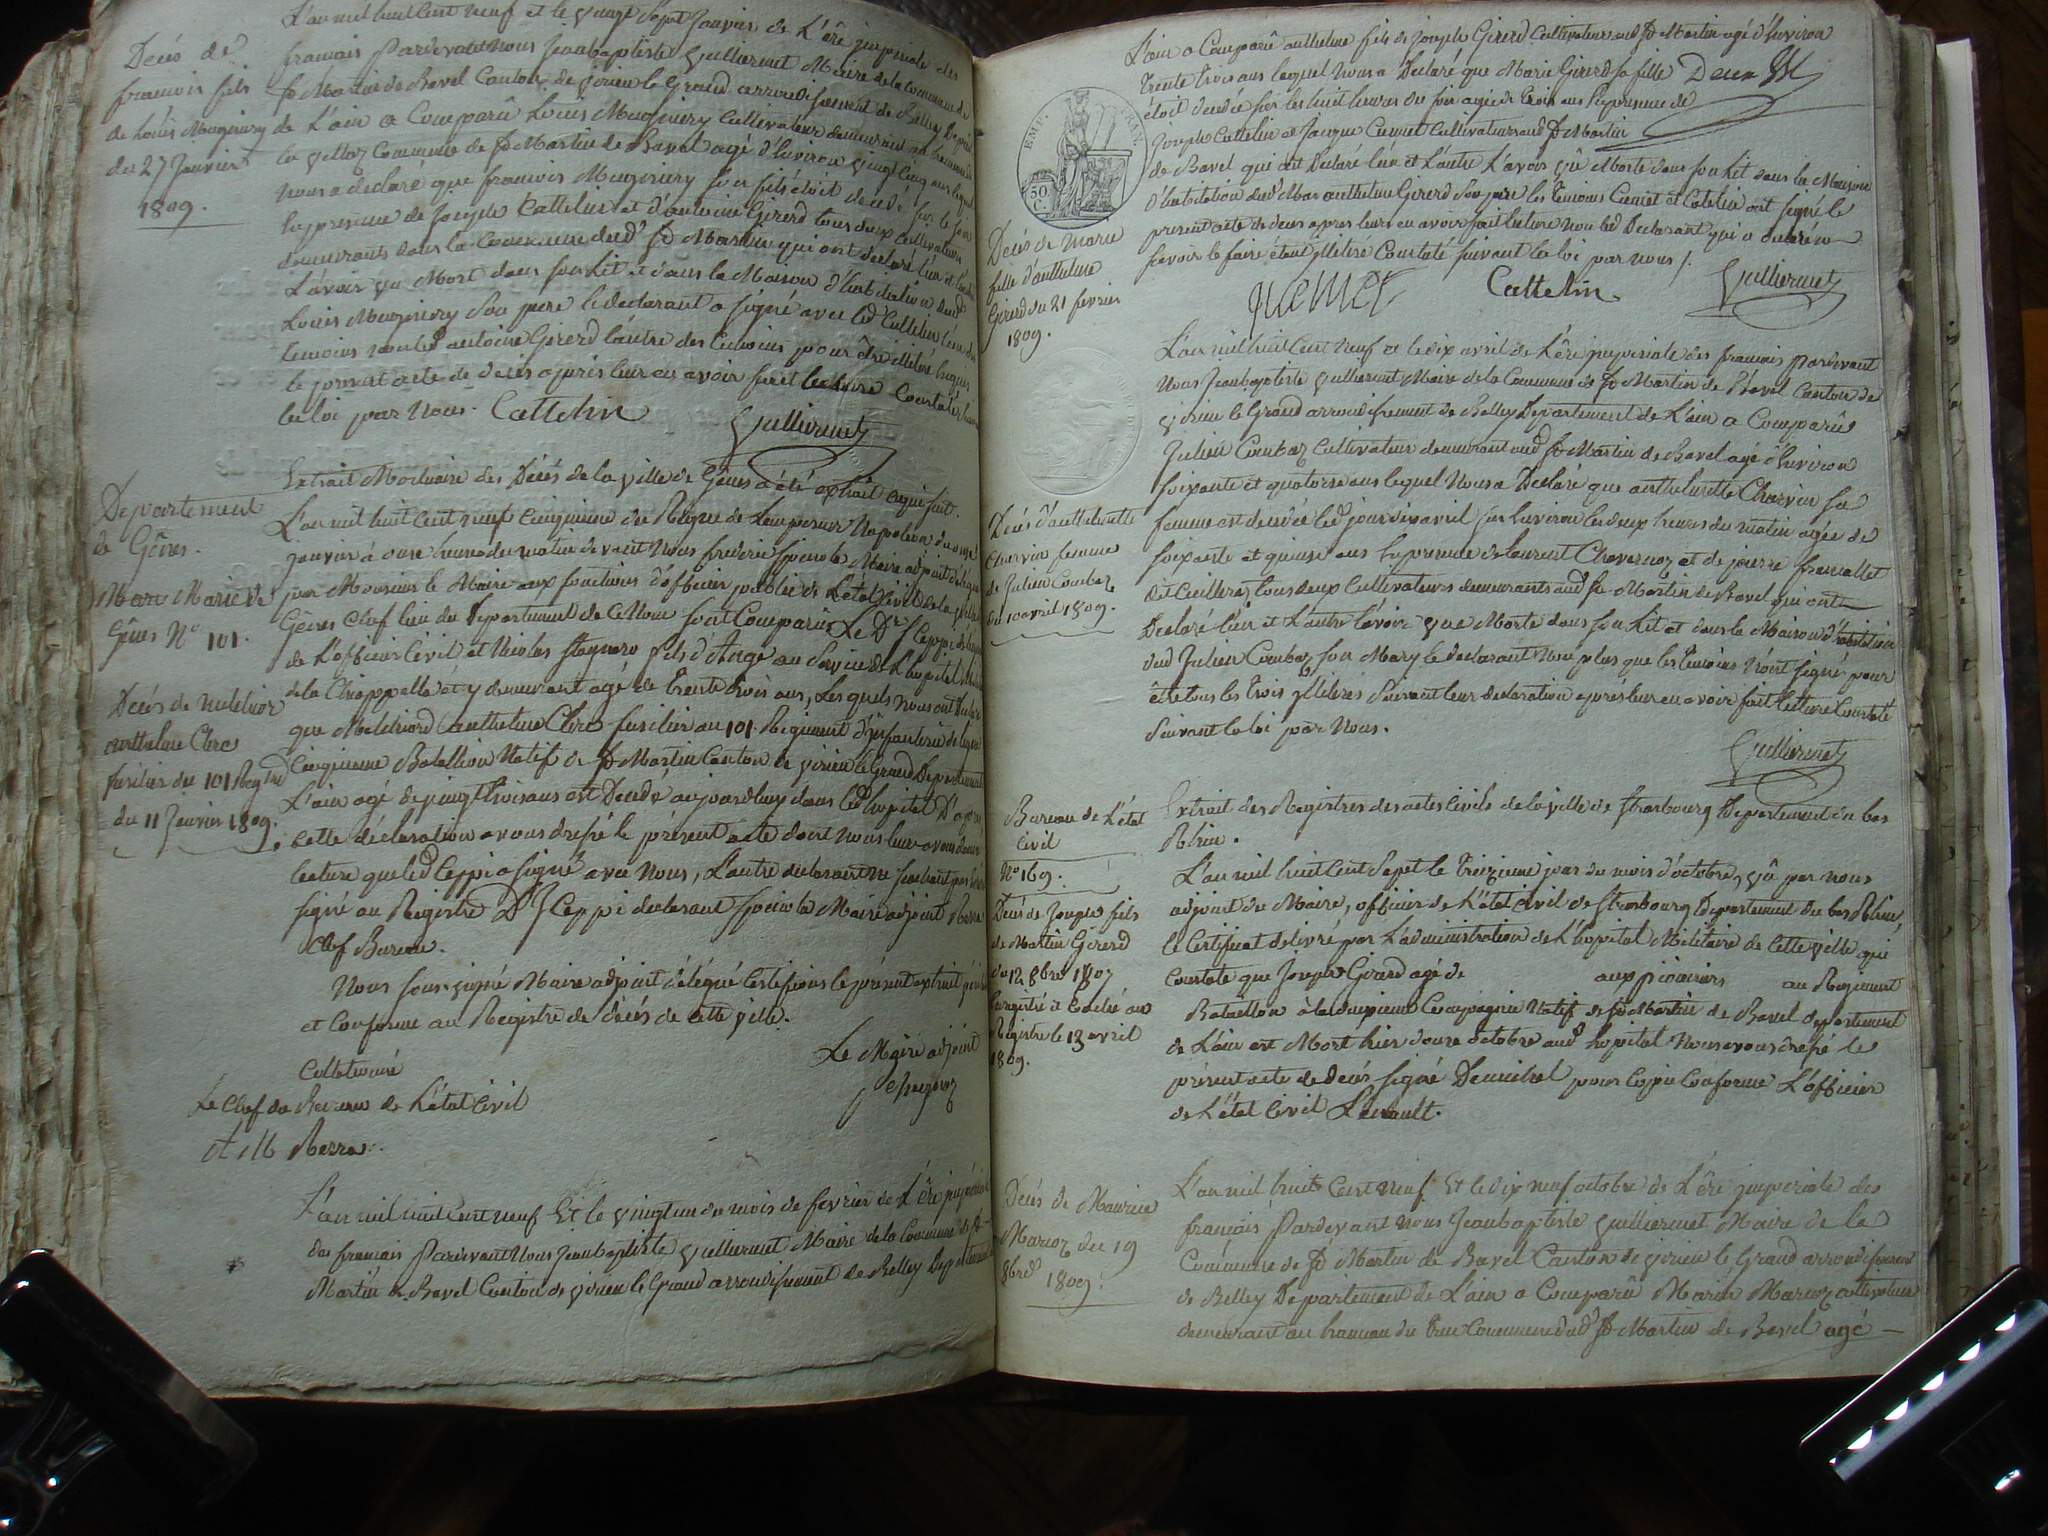 L'an mil huit cent neuf et le vingt sept Janvier de L'ère imperiale des
francais Pardevant Nous Jeanbaptiste Guilliermet Maire de la Commune de
St Martin de Bavel Canton de virieu le Grand arrondissement de Belley Depart
de L'ain a Comparû Louis Mugniery Cultivateur demeurant au hameau de
la Commune de St Martin de Bavel agé d'Environ vingt Cinq ans lequel
Nous a declaré que francois Mugniery son fils étoit decedé sur le soir
En presence de Joseph Cattelin et d'antoine Girerd tous deux Cultivateurs
demeurants dans la Commune dud St Martin qui ont declaré l'un et l'autre
L'avoir vu Mort dans son Lit et dans la Maison d'habitation dud
Louis Mugniery son pere le declarant a signé avec led Cattelin l'un des
temoins non led antoine Girerd l'autre des temoins pour être illitéré
le present acte de decés après leur en avoir fait lecture Constaté suivant
la loi par Nous. Cattelin Guilliermet
Decés de
francois fils
de Louis Mugniery
du 27 Janvier
1809.
Extrait Mortuaire des Décés de la ville de Gênes a été extrait ce qui suit.
Departement
de Gênes.
Marie de
Gênes No 101.
Decés de Melchior
anthelme Clerc
fusilier du 101 Regt
du 11 Janvier 1809.
L'an mil huit cent neuf Cinquieme du Regne de L'empereur Napoleon du onze
janvier à onze heures du matin devant Nous frederic Spinola Maire adjoint délégué
par Monsieur le Maire aux fonctions d'officier public de L'etat Civil de la ville de
Gênes Chef lieu du Departement de Ce Nom sont Comparûs Le Dr J Ceppi
de L'officier Civil et Nicolas Stagnaro fils d'Ange au Service de L'hopital
de la Chiappella et y demeurant agé de trente trois ans, Lesquels Nous ont Declaré
que Melchiord anthelme Clerc fusilier au 101 Regiment d'Infanterie de ligne
Cinquieme Bataillon Natif de St Martin Canton de virieu le Grand Departement
L'ain agé de vingt trois ans est Decedé aujourdhuy dans led hopital D'après
cette déclaration avons dressé le présent acte dont Nous leur avons donné
lecture que led Ceppi a signé avec Nous, L'autre declarant ne sachant pas
signé au Registre Dr J Ceppi declarant Spinola Maire adjoint Rerra
Chef Bureau.
Nous sous signé Maire adjoint délégué Certifions le présent extrait
et Conforme au Registre de décés de cette ville.
Collationné
Le Maire adjoint
Le Chef du Bureau de L'état Civil
Rerra.
L'an mil huit cent neuf Et le vingt un du mois de fevrier de L'ère impériale
des francais Pardevant Nous Jeanbaptiste Guilliermet Maire de la Commune de St
Martin de Bavel Canton de virieu le Grand arrondissement de Belley Departement
L'ain a Comparû anthelme fils de Joseph Girerd Cultivateur aud St Martin agé d'Environ
trente trois ans lequel Nous a Declaré que Marie Girerd sa fille
étoit decedée sur les huit heures du soir agée de trois ans En presence de
Joseph Cattelin et Cultivateurs aud St Martin
de Bavel qui ont Declaré l'un et L'autre L'avoir vû Morte dans son Lit dans la Maison
d'habitation dud anthelme Girerd Son pere les temoins et Catelin ont signé le
present acte de deces apres leur en avoir fait lecture non led Declarant qui a declaré ne
scavoir le faire étant illitéré Constaté suivant la loi par nous /.
EMP. FRAN.
50 C.
Decés de Marie
fille d'anthelme
Girerd du 21 fevrier
1809.
Cattelin Guilliermet
L'an mil huit Cent Neuf et le dix avril de L'ère imperiale des francais Pardevant
Nous Jeanbaptiste Guilliermet Maire de la Commune de St Martin de Bavel Canton de
virieu le Grand arrondissement de Belley Departement de L'ain a Comparû
Julien Combaz Cultivateur demeurant aud St Martin de Bavel agé d'Environ
soixante et quatorze ans lequel Nous a Declaré que anthelmette Charvin sa
femme est decedée led jour dix avril sur Environ les deux heures du matin agée de
soixante et quinze ans En presence de laurent et de pierre francallet
dit tous deux Cultivateurs demeurants aud St Martin de Bavel qui ont
Declaré l'un et L'autre l'avoir vue Morte dans son Lit et dans la Maison d'habitation
dud Julien Combaz son Mary le declarant Non plus que les temoins N'ont signé pour
être tous les trois illitérés Suivant leur declaration après leur en avoir fait lecture Constaté
Suivant la loi par Nous.
Guilliermet
Decés d'anthelmette
Charvin femme
de Julien Combaz
du 10 avril 1809.
Bureau de L'état
Civil
No 169.
Decés de Joseph fils
de Martin Girerd
du 12 8bre 1807
Enregistré
Registre le 13 avril
1809.
Extrait des Registres des actes Civils de la ville de Strasbourg Departement du bas
Rhin.
L'an mil huit Cent Sept le treizieme jour du mois d'octobre, vû par nous
adjoint du Maire, officier de L'état Civil de Strasbourg Departement du bas Rhin,
le Certificat delivré par L'administration de L'hopital Militaire de Cette ville qui
Constate que Joseph Girard agé de aux pionniers au Regiment
Bataillon à la deuxieme Compagnie Natif de St Martin de Bavel departement
de L'ain est Mort hier douze octobre aud hopital Nous avons dressé le
présent acte de Decés signé pour Copie Conforme L'officier
de L'état Civil
Decés de Maurice
Marcoz du 19
8bre 1809.
L'an mil huit Cent Neuf Et le dix neuf octobre de L'ère imperiale des
français Pardevant Nous Jeanbaptiste Guilliermet Maire de la
Commune de St Martin de Bavel Canton de virieu le Grand arrondissement
de Belley Departement de L'ain a Comparû Marcoz Cultivateur
demeurant au hameau du Commune dud St Martin de Bavel agé